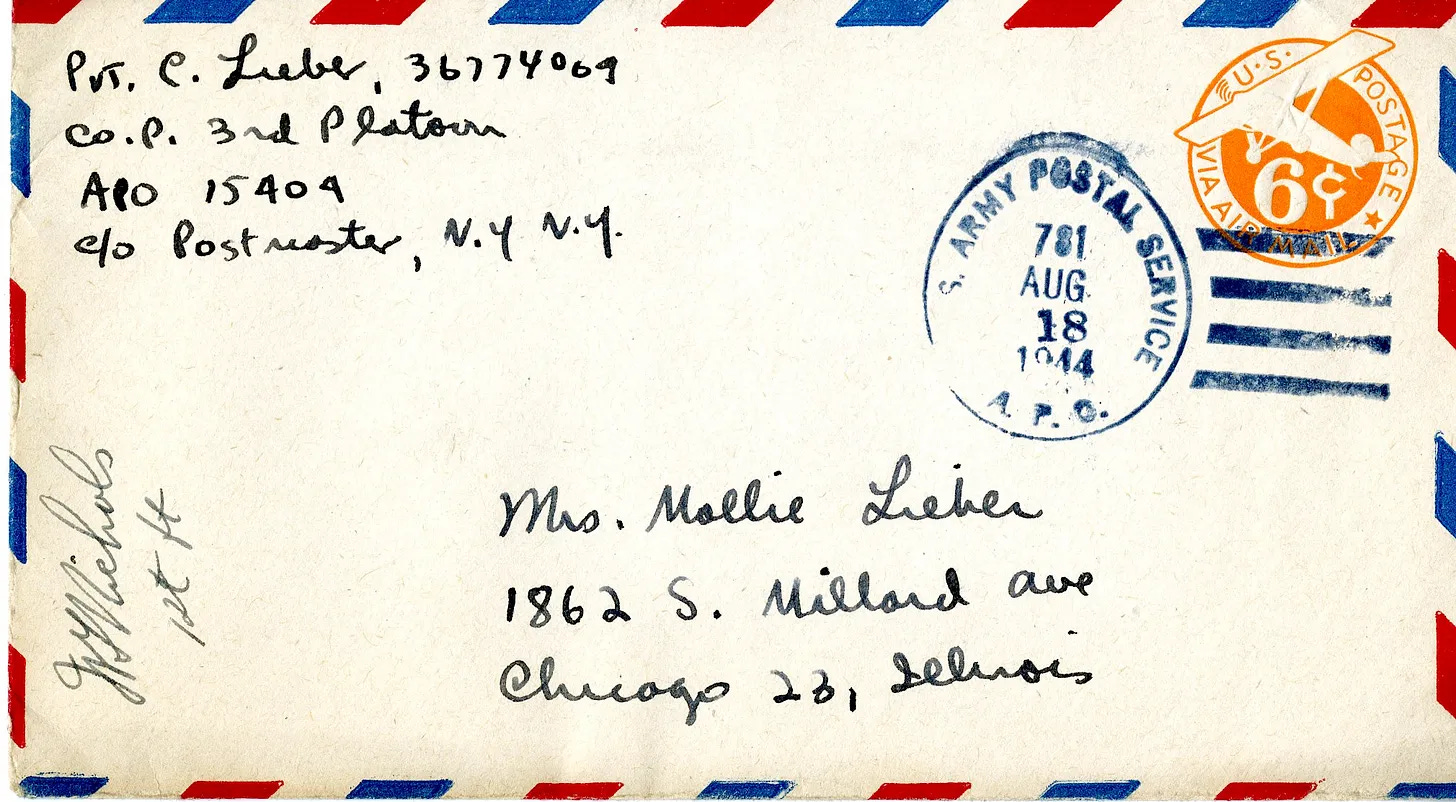 Pvt. C. Lieber, 36774069
Co.P. 3rd Platoon
APO 15404
c/o Postmaster, N.Y N.Y.
U.S. POSTAGE
6¢
VIA AIR MAIL
S. ARMY POSTAL SERVICE
781
AUG
18
1944
A. P. O.
Nichols
1st Lt
Mrs. Mollie Lieber
1862 S. Millard ave
Chicago 23, Illinois